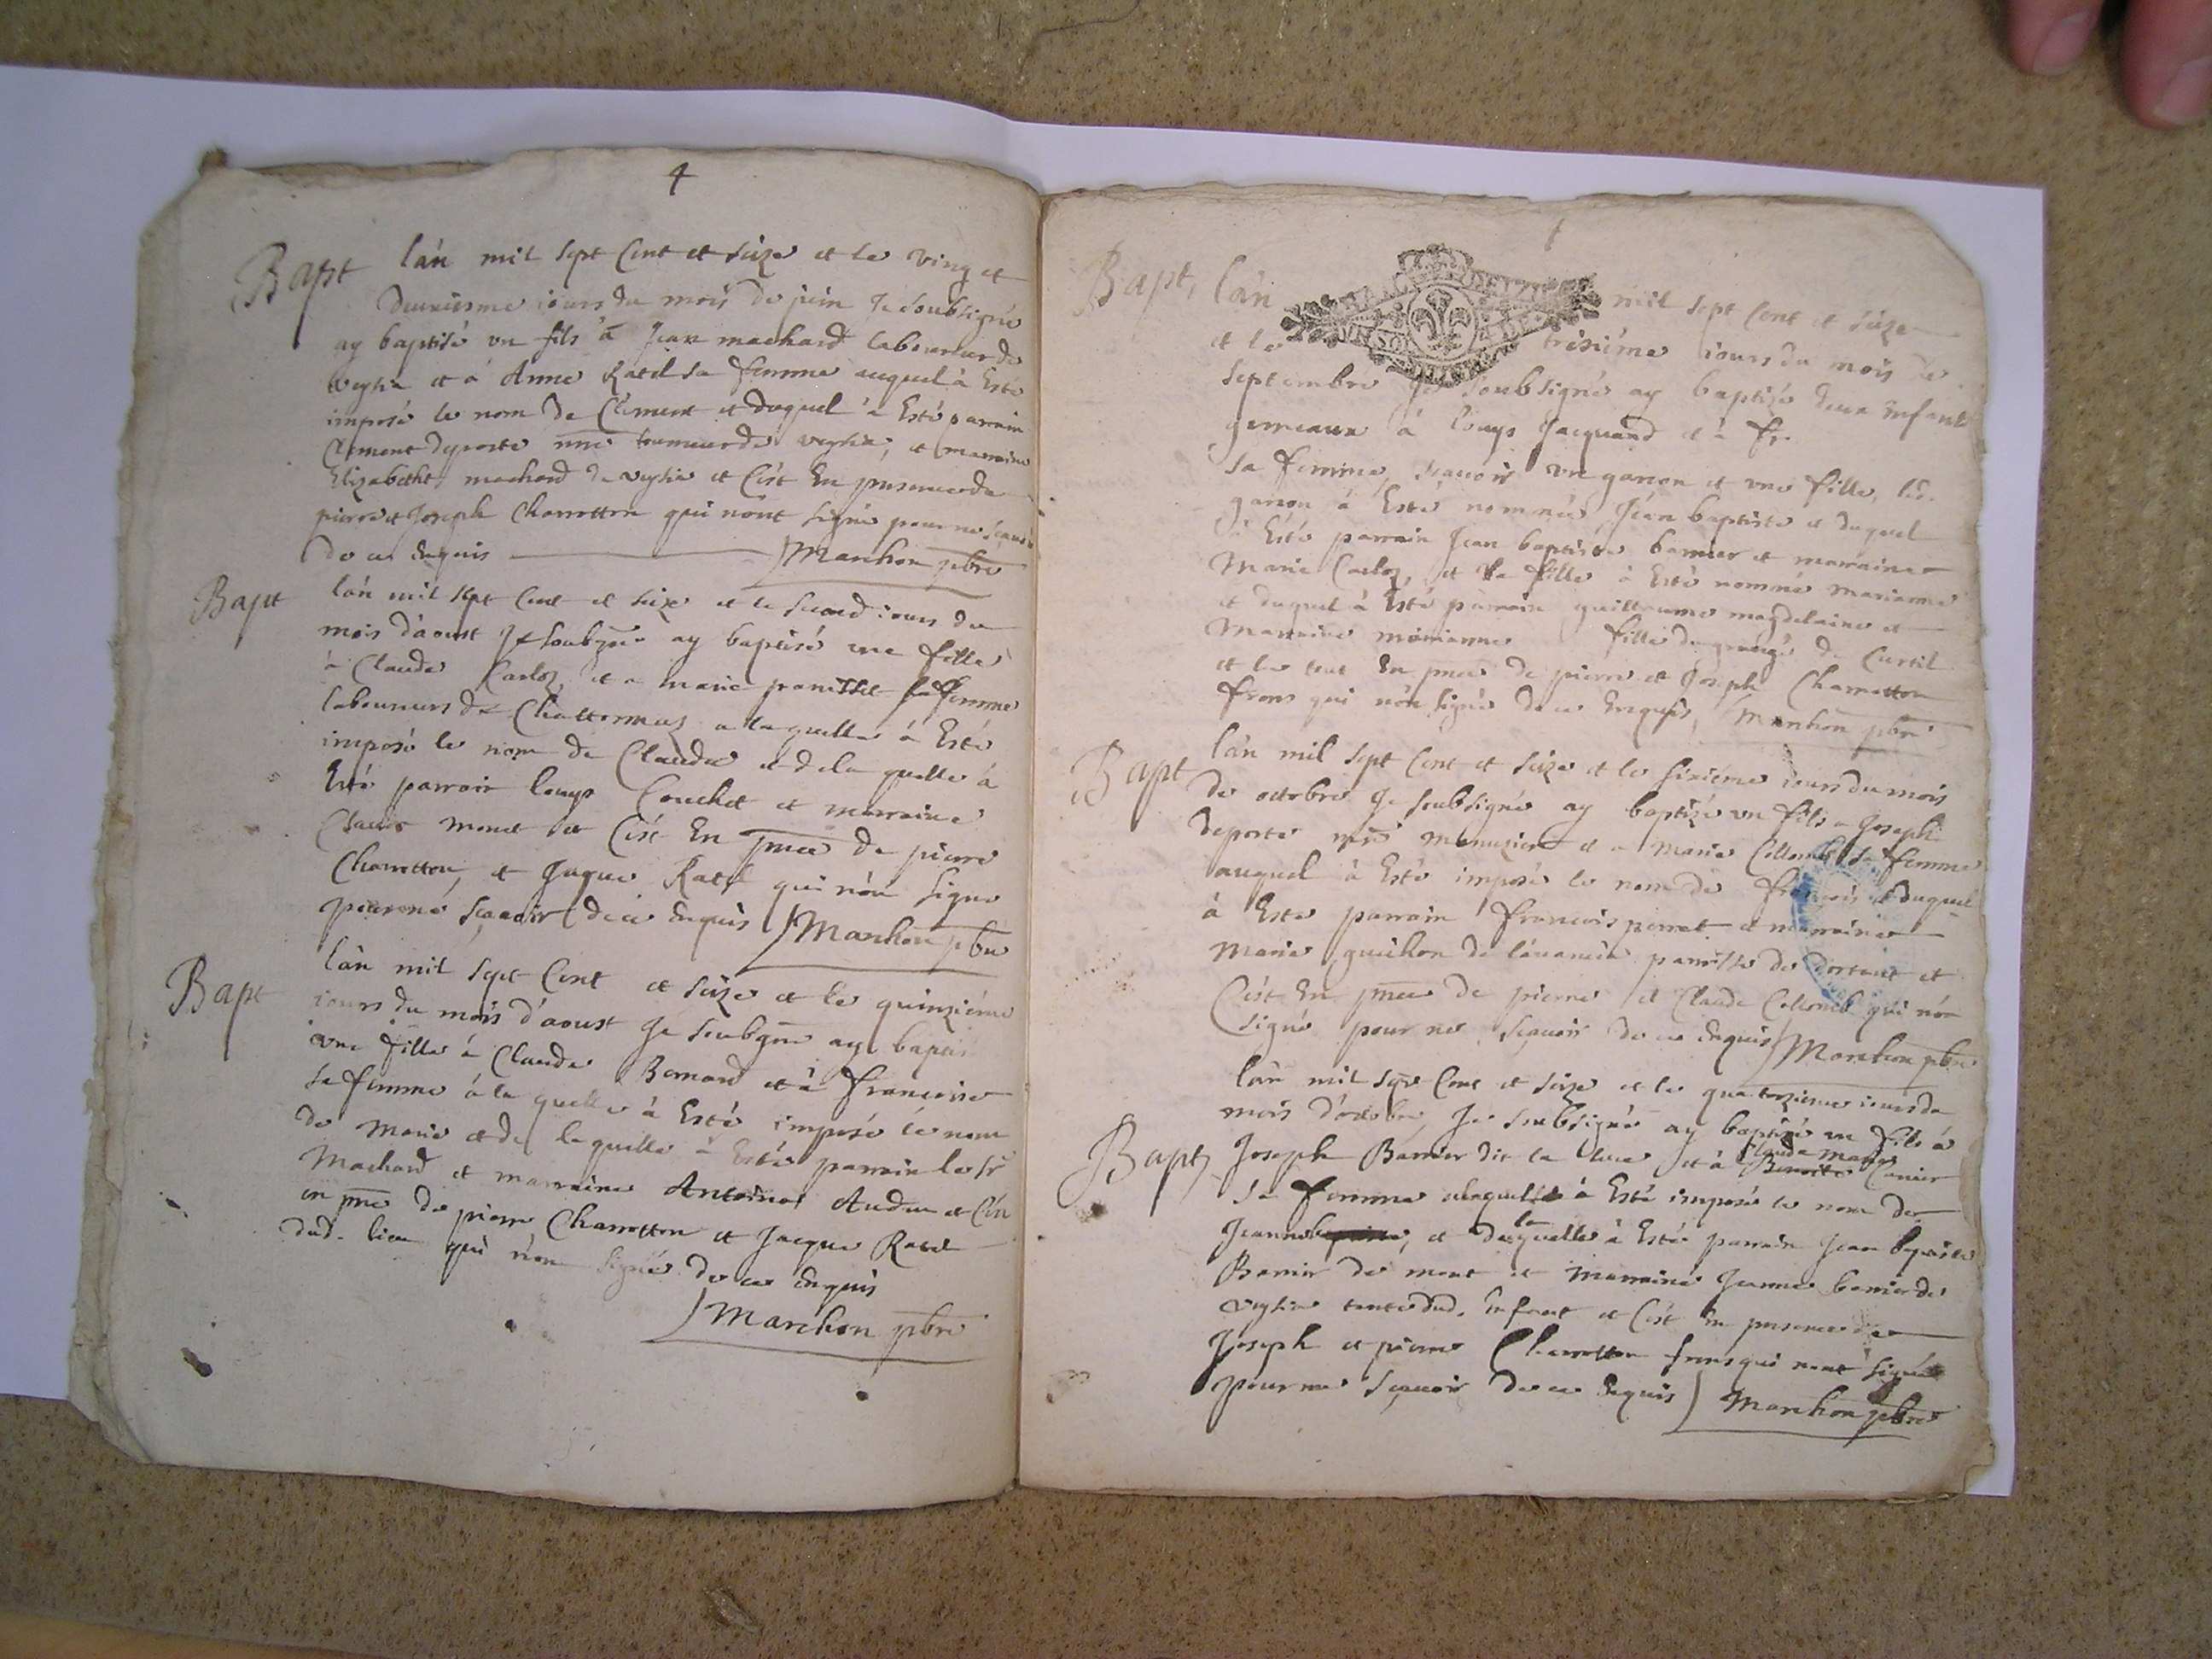 4
Bapt lán mil sept Cent et seize et le ving et
deuxiesme iours du mois de juin Je soubsigné
ay baptisé un fils à Jean machard laboureur de
veysia et á Anne Ratel sa femme auquel à Esté
imposé le nom de Clement et duquel à Esté parrain
Clement deporte tourneur de veysia, et marraine
Elizabetht machard de veysia et C'est En presence de
pierre et Joseph Charretton qui nônt signé pour ne scavoir
de ce Enquis Marchon pbre
Bapt lán mil sept Cent et seize et le second iours du
mois d'aoust Je soubgné ay baptisé une fille
à Claude Carloz et a marie sa femme
laboureurs de Chattonnaz a laquelle à Esté
imposé le nom de Claudie et de la quelle à
Esté parrain louys Couchet et marraine
monet et C'est En pnce de pierre
Charretton, et Jaque Ratel qui nón signe
pour ne sçavoir de ce Enquis Marchon pbre
Bapt lán mil sept Cent et seize et le quinziéme
iours du mois d'aoust Je soubgné ay baptisé
une fille à Claude Bernard et à francoise
sa femme á la quelle à Esté imposé le nom
de Marie et de laquelle à Esté parrain le Sr
Machard et marraine Antoinet Audau et C'est
en pnce de pierre Charretton et Jacque Ratel
dud. lieu qui n'ont signé de ce Enquis
Marchon pbre
Bapt, lán mil sept Cent et seize
et le tresiéme iours du mois de
septembre Je soubsigné ay baptizé deux Enfants
gemeaux à louys Jacquand et à fr.
sa femme, scavoir un garson et une fille, led.
garson à Esté nommé Jean baptiste et duquel
à Esté parrain Jean baptiste barnier et marraine
Marie Carloz, et la fille à Esté nommé marianne
et duquel à Esté parrain guillaume magdelaine et
Marraine marianne fille de de Curtil
et le tout En pnce de pierre et Joseph Charretton
freres qui nón signé de ce Enquis, Marchon pbre
Bapt lán mil sept Cent et seize et le sixiéme iours du mois
de octobre Je soubsigné ay baptizé un fils a Joseph
deporte menuzier et a Marie Collomb sa femme
auquel à Esté imposé le nom de françois et duquel
à Esté parrain francois perret et marraine
Marie guichon de lávancia parroisse de dortent et
C'est En pnce de pierre et Claude Collomb qui nón
signé pour ne sçavoir de ce Enquis Marchon pbre
lán mil sept Cent et seize et le quatorzieme iours du
mois d'octobre, Je soubsigné ay baptizé un fils á
Bapt, Joseph Barnier dit la et à Benoitte Claude Marie
sa femme alaquelle à Esté imposé le nom de
Jeanne, et de la quelle à Esté parrain Jean baptiste
Barnier de mont et marraine Jeanne barnier de
veysia tante dud. Enfant et C'est En presence de
Joseph et pierre Charretton freres qui nont signé
pour ne sçavoir de ce Enquis Marchon pbre